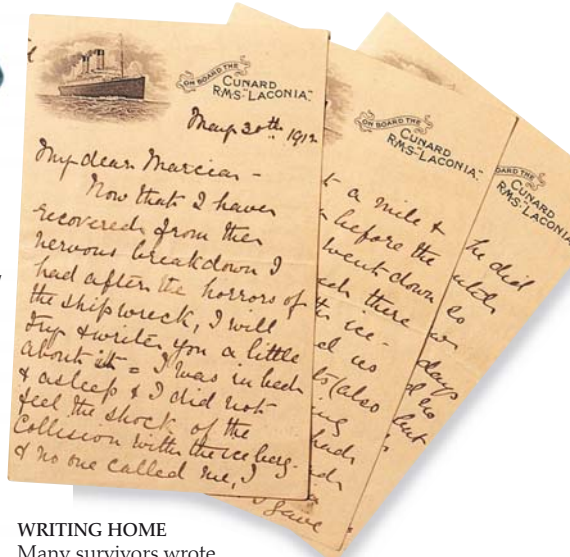 ON BOARD THE
CUNARD
R.M.S. "LACONIA."
May 30th 1912
My dear Marcia -
Now that I have
recovered from the
nervous breakdown I
had after the horrors of
the shipwreck, I will
try & write you a little
about it = I was in bed
& asleep & I did not
feel the shock of the
Collision with the iceberg -
& no one called me, I
ON BOARD THE
CUNARD
R.M.S. "LACONIA."
a mile &
before the
went down
there
ice-
us
(also
ON BOARD THE
CUNARD
R.M.S. "LACONIA
he did
so
days
no
but
WRITING HOME
Many survivors wrote